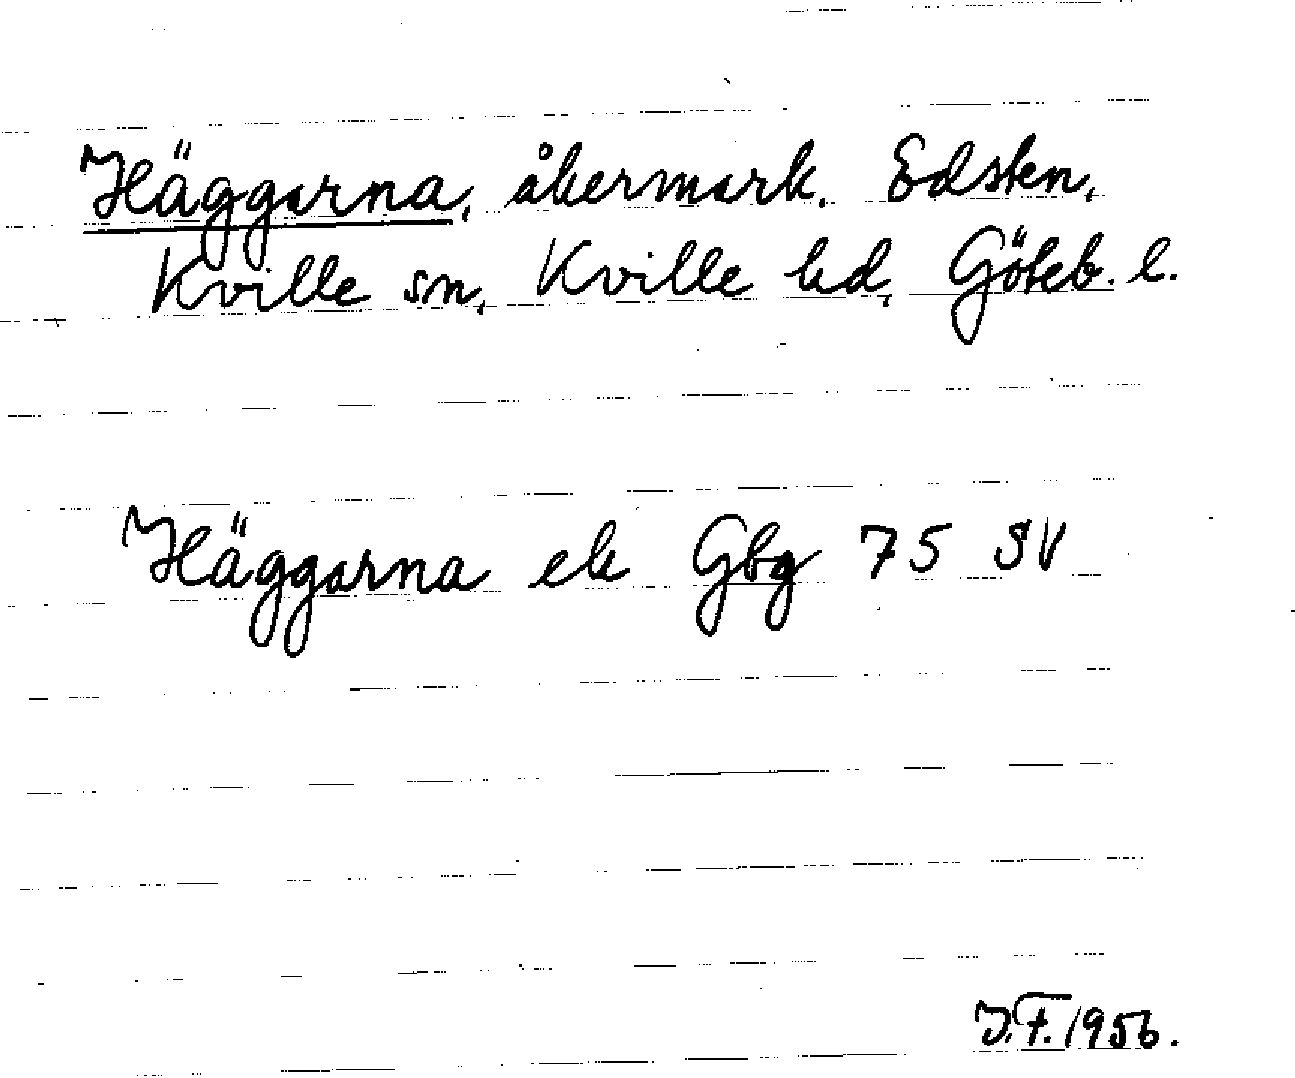 Häggarna, åkermark. Edsten,
Kville sn, Kville hd, Göteb. l.
Häggarna ek Gbg 75 SV
J.F. 1956.